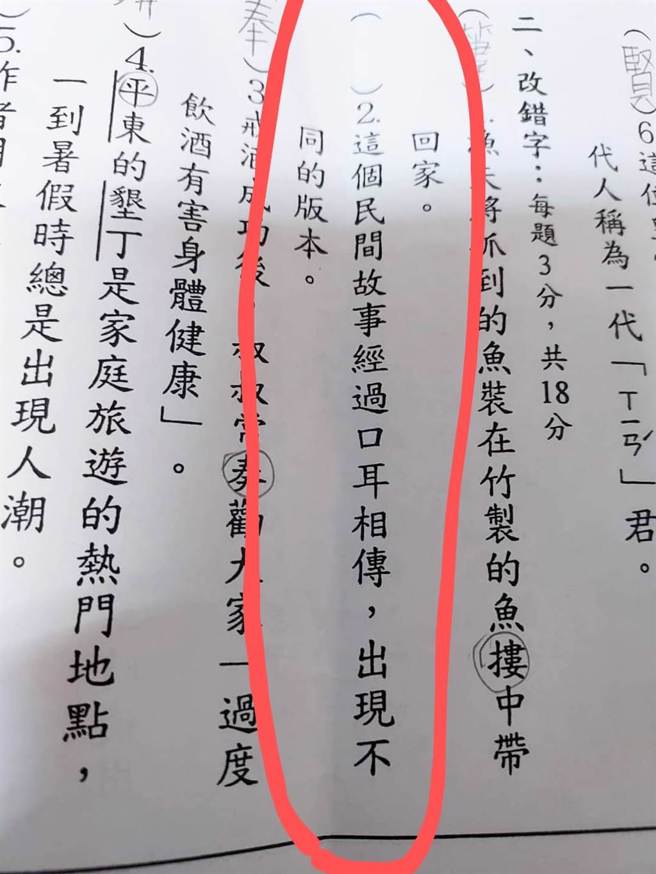 (賢)6.這位
代人稱為一代「ㄒㄧㄢˊ」君。
二、改錯字：每題3分，共18分
( )1.漁夫將抓到的魚裝在竹製的魚摟中帶
回家。
( )2.這個民間故事經過口耳相傳，出現不
同的版本。
(奉)3.戒酒成功後，叔叔常奏勸大家一過度
飲酒有害身體健康」。
)4.平東的墾丁是家庭旅遊的熱門地點，
一到暑假時總是出現人潮。
)5.作者